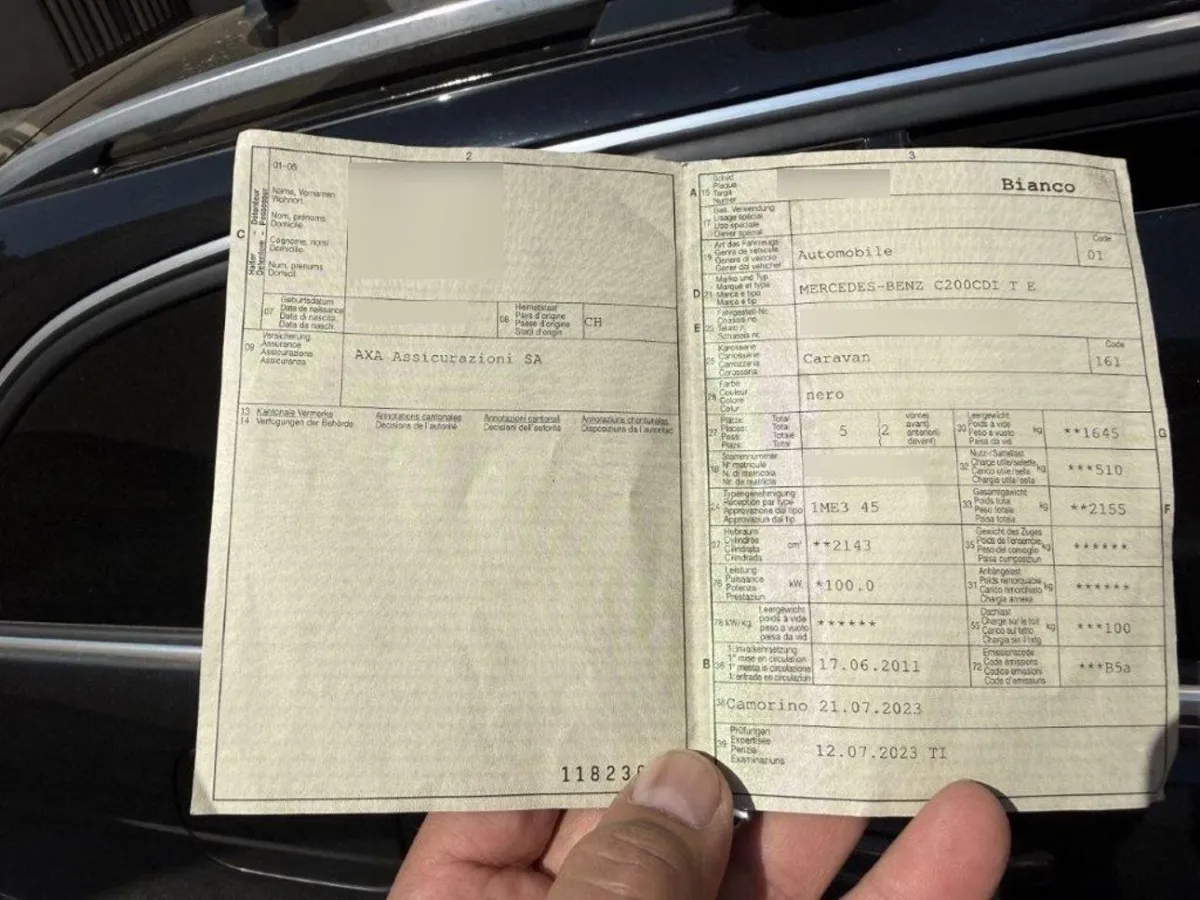 2
01-06
C
Halter - Détenteur
Detentore - Possessur
Name, Vornamen
Wohnort
Nom, prénoms
Domicile
Cognome, nomi
Domicilio
Num, prenums
Domicil
07
Geburtsdatum
Date de naissance
Data di nascita
Data da nasch.
08
Heimatstaat
Pays d'origine
Paese d'origine
Stadi d'origin
CH
09
Versicherung
Assurance
Assicurazione
Assicuranza
AXA Assicurazioni SA
13 Kantonale Vermerke
14 Verfügungen der Behörde
Annotations cantonales
Décisions de l'autorité
Annotazioni cantonali
Decisioni dell'autorità
Annotaziuns chantunalas
Disposiziuns da l'autoritad
11823
3
A 15
Schild
Plaque
Targa
Numer
Bianco
17
Bes. Verwendung
Usage spécial
Uso speciale
Diever spezial
19
Art des Fahrzeugs
Genre de véhicule
Genere di veicolo
Gener dal vehichel
Automobile
Code
01
D 21
Marke und Typ
Marque et type
Marca e tipo
Marca e tip
MERCEDES-BENZ C200CDI T E
E 23
Fahrgestell-Nr.
Châssis no
Telaio n.
Schassis nr.
25
Karosserie
Carrosserie
Carrozzeria
Carossaria
Caravan
Code
161
26
Farbe
Couleur
Colore
Colur
nero
27
Plätze: Total
Places: Total
Posti: Totale
Plazs: Total
5
(2
vorne)
avant)
anteriori)
davant)
30
Leergewicht
Poids à vide
Peso a vuoto
Paisa da vid
kg
**1645
G
18
Stammnummer
N° matricule
N. di matricola
Nr. da matricla
32
Nutz-/Sattellast
Charge utile/sellette
Carico utile/sella
Chargia utila/sella
kg
***510
24
Typengenehmigung
Réception par type
Approvazione del tipo
Approvaziun dal tip
1ME3 45
33
Gesamtgewicht
Poids total
Peso totale
Paisa totala
kg
**2155
F
37
Hubraum
Cylindrée
Cilindrata
Cilindrada
cm³
**2143
35
Gewicht des Zuges
Poids de l'ensemble
Peso del convoglio
Paisa cumposiziun
kg
******
76
Leistung
Puissance
Potenza
Prestaziun
kW
*100.0
31
Anhängelast
Poids remorquable
Carico rimorchiato
Chargia annexa
kg
******
78 kW/kg
Leergewicht
poids à vide
peso a vuoto
paisa da vid
******
55
Dachlast
Charge sur le toit
Carico sul tetto
Chargia sin il tetg
kg
***100
B 36
1. Inverkehrsetzung
1re mise en circulation
1a messa in circolazione
1. entrada en circulaziun
17.06.2011
72
Emissionscode
Code émissions
Codice emissioni
Code d'emissiuns
***B5a
38 Camorino 21.07.2023
39
Prüfungen
Expertises
Perizie
Examinaziuns
12.07.2023 TI